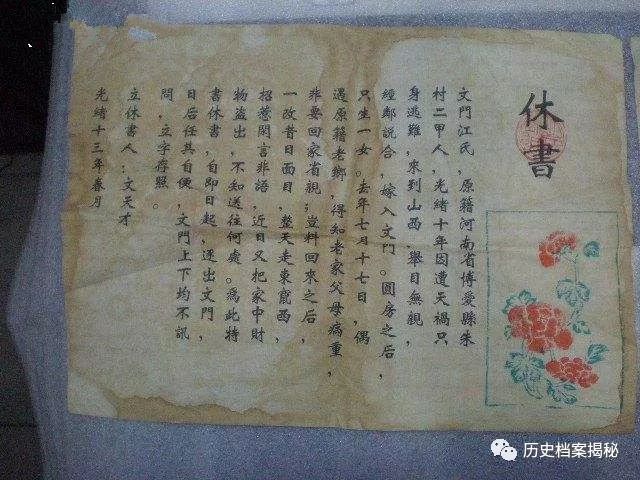 休書
文門江氏，原籍河南省博愛縣朱
村二甲人，光緒十年因遭天禍只
身逃難，來到山西，舉目無親，
經鄰說合，嫁入文門。圓房之后，
只生一女。去年七月十七日，偶
遇原籍老鄉，得知老家父母病重，
非要回家省親；豈料回來之后，
一改昔日面目，整天走東竄西，
招惹閑言非語，近日又把家中財
物盜出，不知送往何處。爲此特
書休書，自即日起，逐出文門，
日后任其自便，文門上下均不訊
問，立字存照。
立休書人：文天才
光緒十三年春月
历史档案揭秘